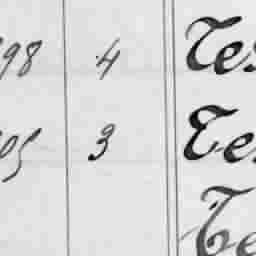 98 4 Tes
05 3 Te
Te